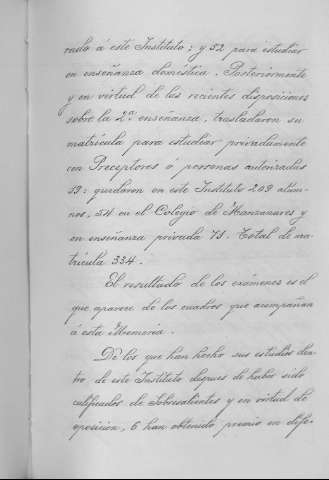 rado á este Instituto; y 52 para estudiar
en enseñanza doméstica. Posteriormente
y en virtud de las recientes disposiciones
sobre la 2ª enseñanza, trasladaron su
matrícula para estudiar privadamente
con Preceptores ó personas autorizadas
59: quedaron en este Instituto 209 alum-
nos, 54 en el Colegio de Manzanares y
en enseñanza privada 71. Total de ma-
trícula 334.
El resultado de los exámenes es el
que aparece de los cuadros que acompañan
á esta Memoria.
De los que han hecho sus estudios den-
tro de este Instituto despues de haber sido
calificados de Sobresalientes y en virtud de
oposicion, 6 han obtenido premio en dife-